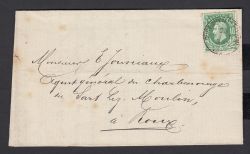 Monsieur E Jowniaux
Agent général du Charbonnage
du Sart lez Moulin,
à Roux